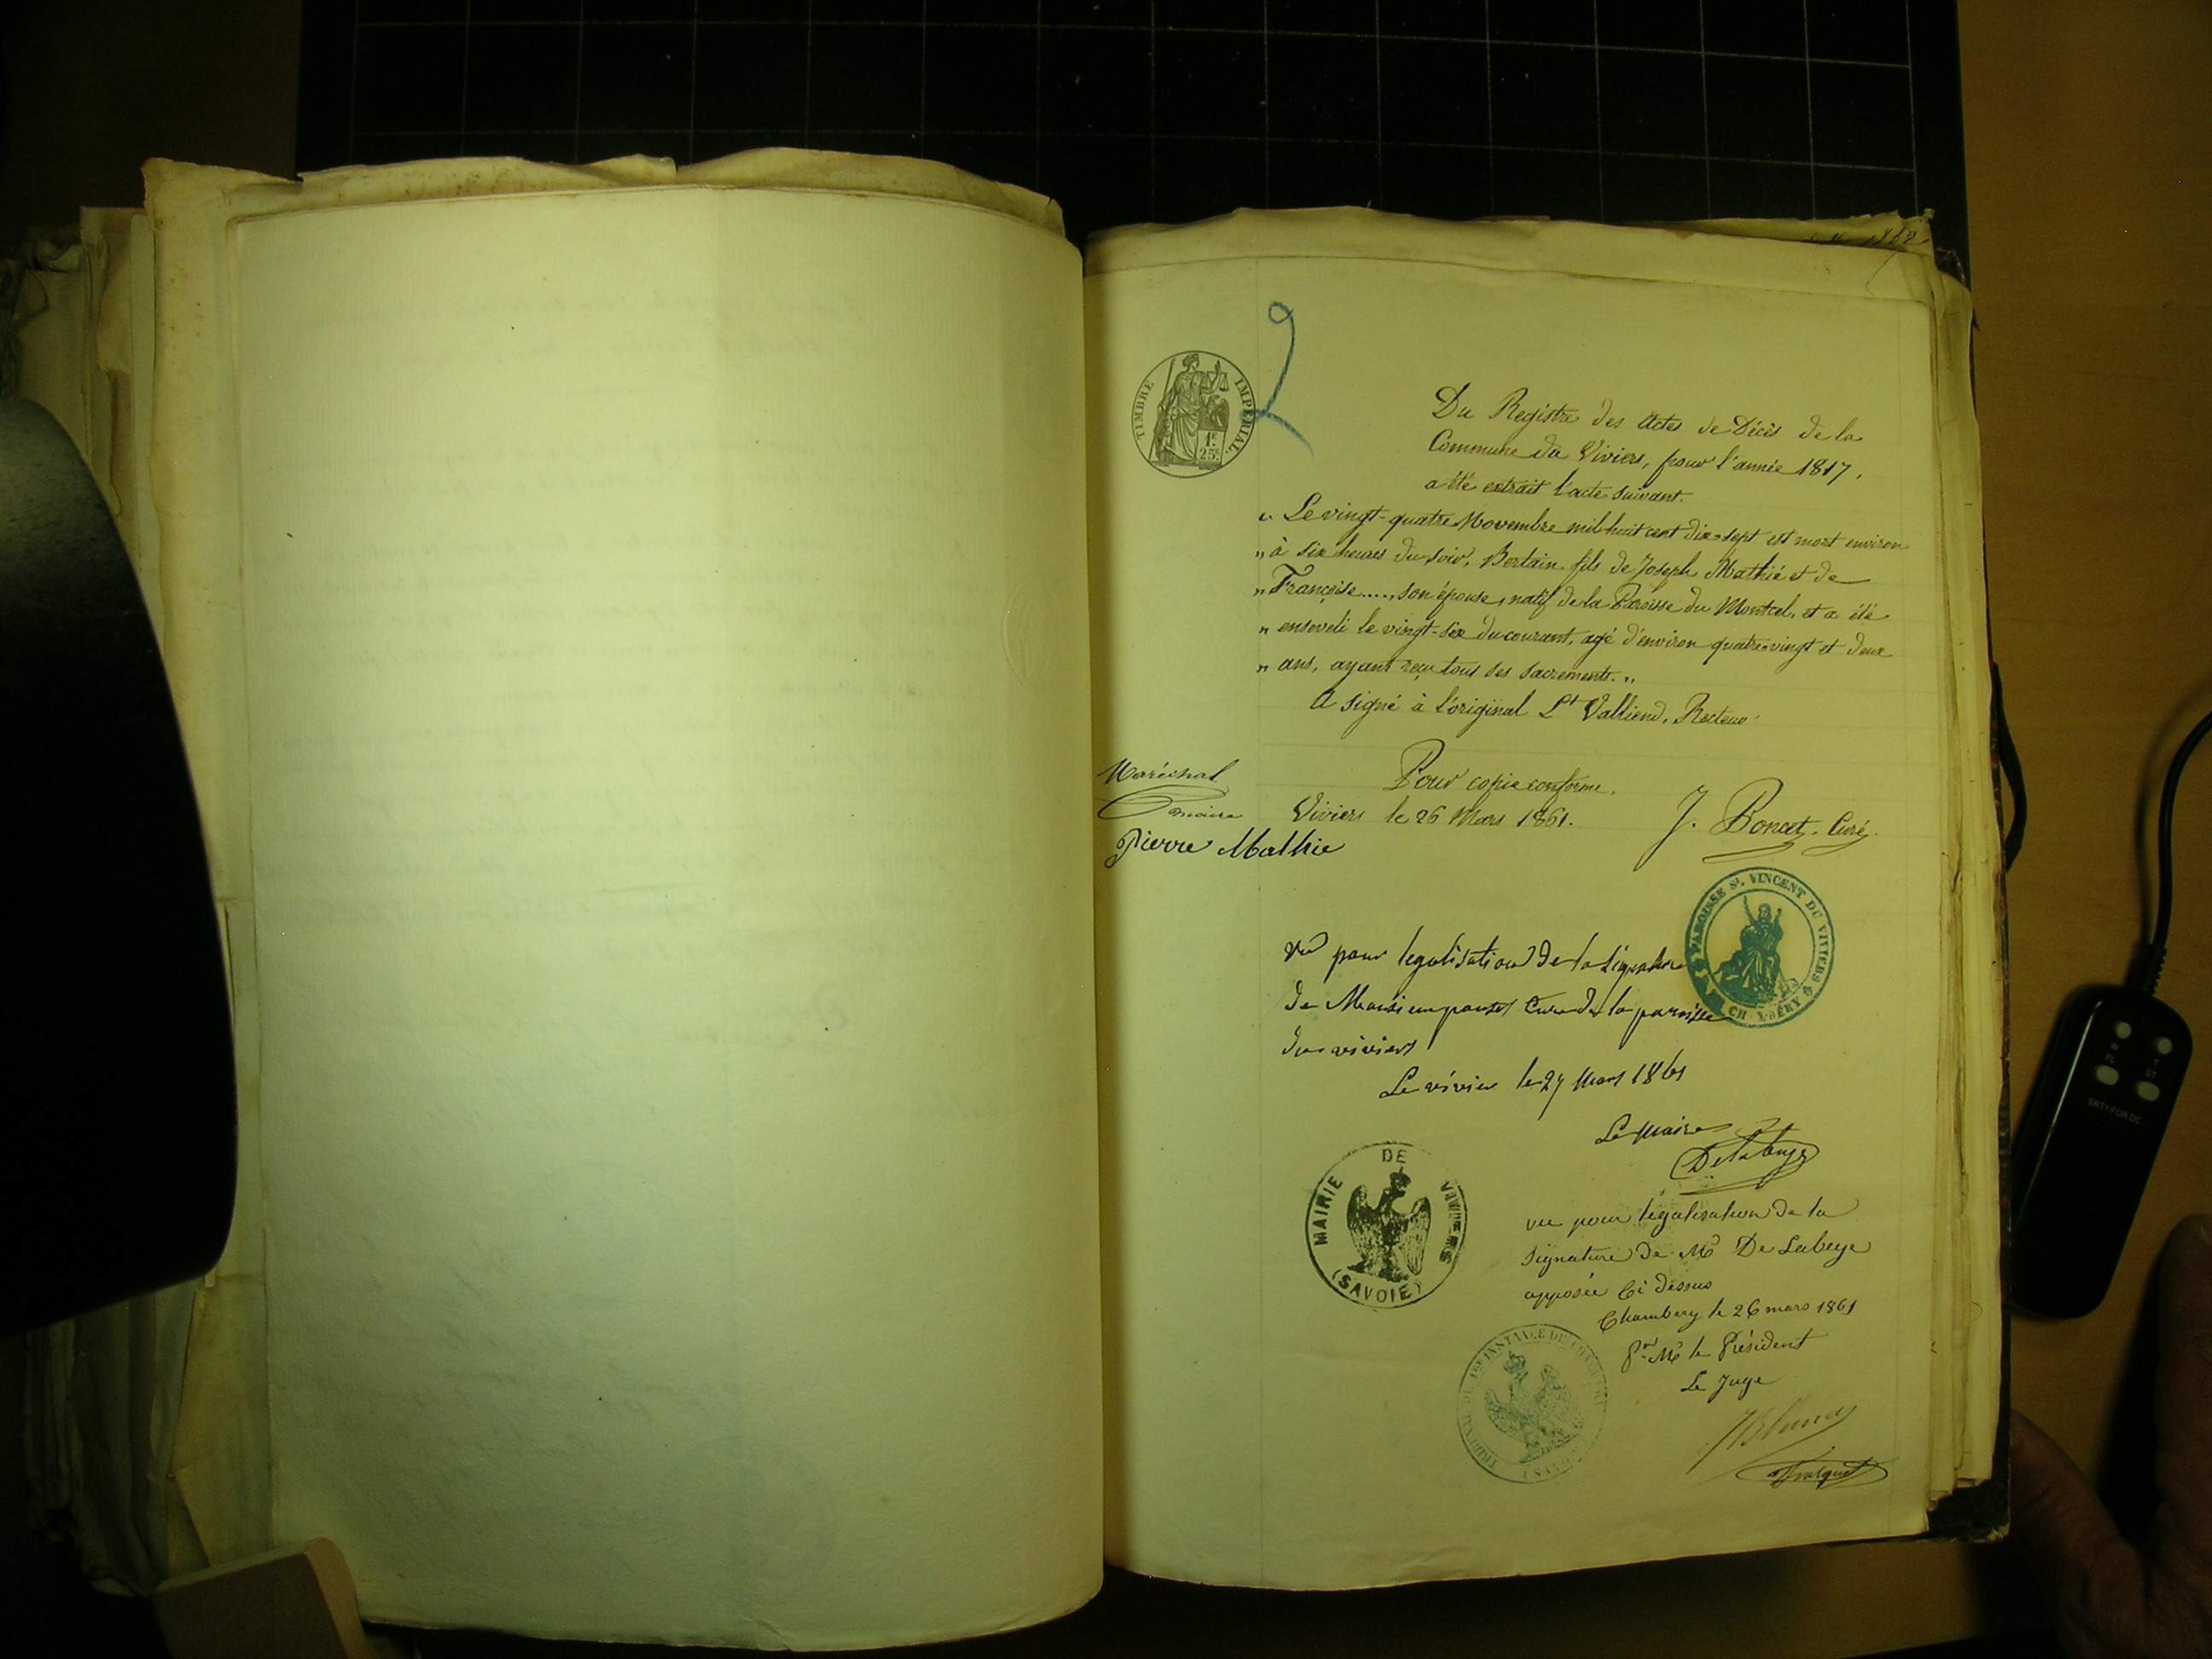 TIMBRE IMPERIAL.
1F.
25c.
Du Registre des Actes de Décès de la
Commune du Viviers, pour l'année 1817,
a été extrait l'acte suivant.
" Le vingt-quatre Novembre mil huit cent dix-sept est mort environ
" à six heures du soir, Bertain fils de Joseph Mathié et de
" Françoise ....., son épouse, natif de la Paroisse du Montcel, et a été
" enseveli le vingt-six du courant, agé d'environ quatre-vingt et deux
" ans, ayant reçu tous ses sacrements. "
A signé à l'original Lt Valliend, Recteur
Maréchal
maire
Pierre Mathie
Pour copie conforme.
Viviers le 26 Mars 1861.
J. Poncet. Curé
PAROISSE St. VINCENT DU VIVIERS
CHAMBÉRY
Vu pour legalisation de la signature
de Monsieur poncet Curé de la paroisse
du viviers
Le vivier le 27 Mars 1861
Le Maire
MAIRIE DE VIVIERS
(SAVOIE)
vu pour légalisation de la
signature de Mr De Labeye
apposée ci dessus
Chambery le 26 mars 1861
Pr Mr le Président
Le Juge
TRIBUNAL DE 1ère INSTANCE DE CHAMBERY
(SAVOIE)